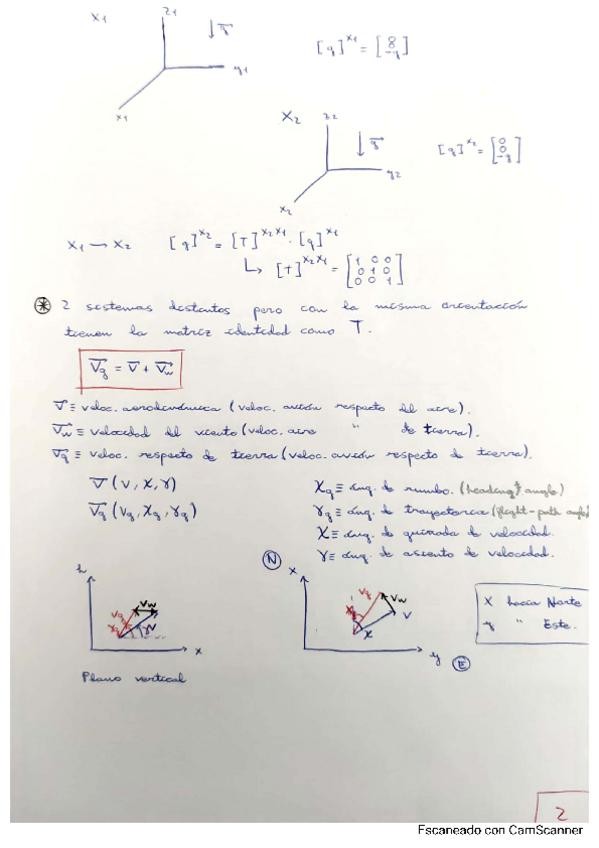 X₁ z₁ ↓g⃗
[g]^X₁ = [8 -g]
y₁
x₁
X₂ z₂ ↓g⃗
[g]^X₂ = [0 0 -g]
y₂
x₂
X₁ → X₂ [g]^X₂ = [T]^X₂X₁ · [g]^X₁
↳ [T]^X₂X₁ = [1 0 0
0 1 0
0 0 1]
* 2 sistemas distintos pero con la misma orientación
tienen la matriz identidad como T.
V⃗g = V⃗ + V⃗w
V⃗ ≡ veloc. aerodinámica (veloc. avión respecto del aire).
V⃗w ≡ velocidad del viento (veloc. aire " de tierra).
V⃗g ≡ veloc. respecto de tierra (veloc. avión respecto de tierra).
V⃗ (V, χ, γ) χg ≡ áng. de rumbo. (heading angle)
V⃗g (Vg, χg, γg) γg ≡ áng. de trayectoria (flight-path angle)
χ ≡ áng. de guiñada de velocidad.
γ ≡ áng. de asiento de velocidad.
N
h x
Vw Vg Vw
Vg V χ V
x hacia Norte
y " Este.
x y E
Plano vertical
2
Escaneado con CamScanner